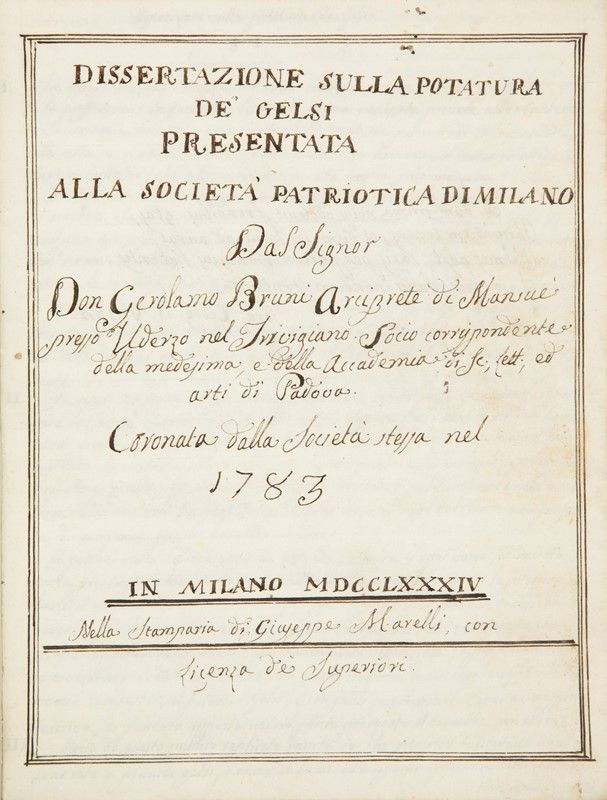 DISSERTAZIONE SULLA POTATURA
DE' GELSI
PRESENTATA
ALLA SOCIETA' PATRIOTICA DI MILANO
Dal Signor
Don Gerolamo Bruni Arciprete di Mansuè
presso Uderzo nel Trivigiano. Socio corrispondente
della medesima, e della Accademia di Sc, Lett, ed
arti di Padova.
Coronata dalla Società stessa nel
1783
IN MILANO MDCCLXXXIV
Nella Stamparia di Giuseppe Marelli, con
licenza de' Superiori.